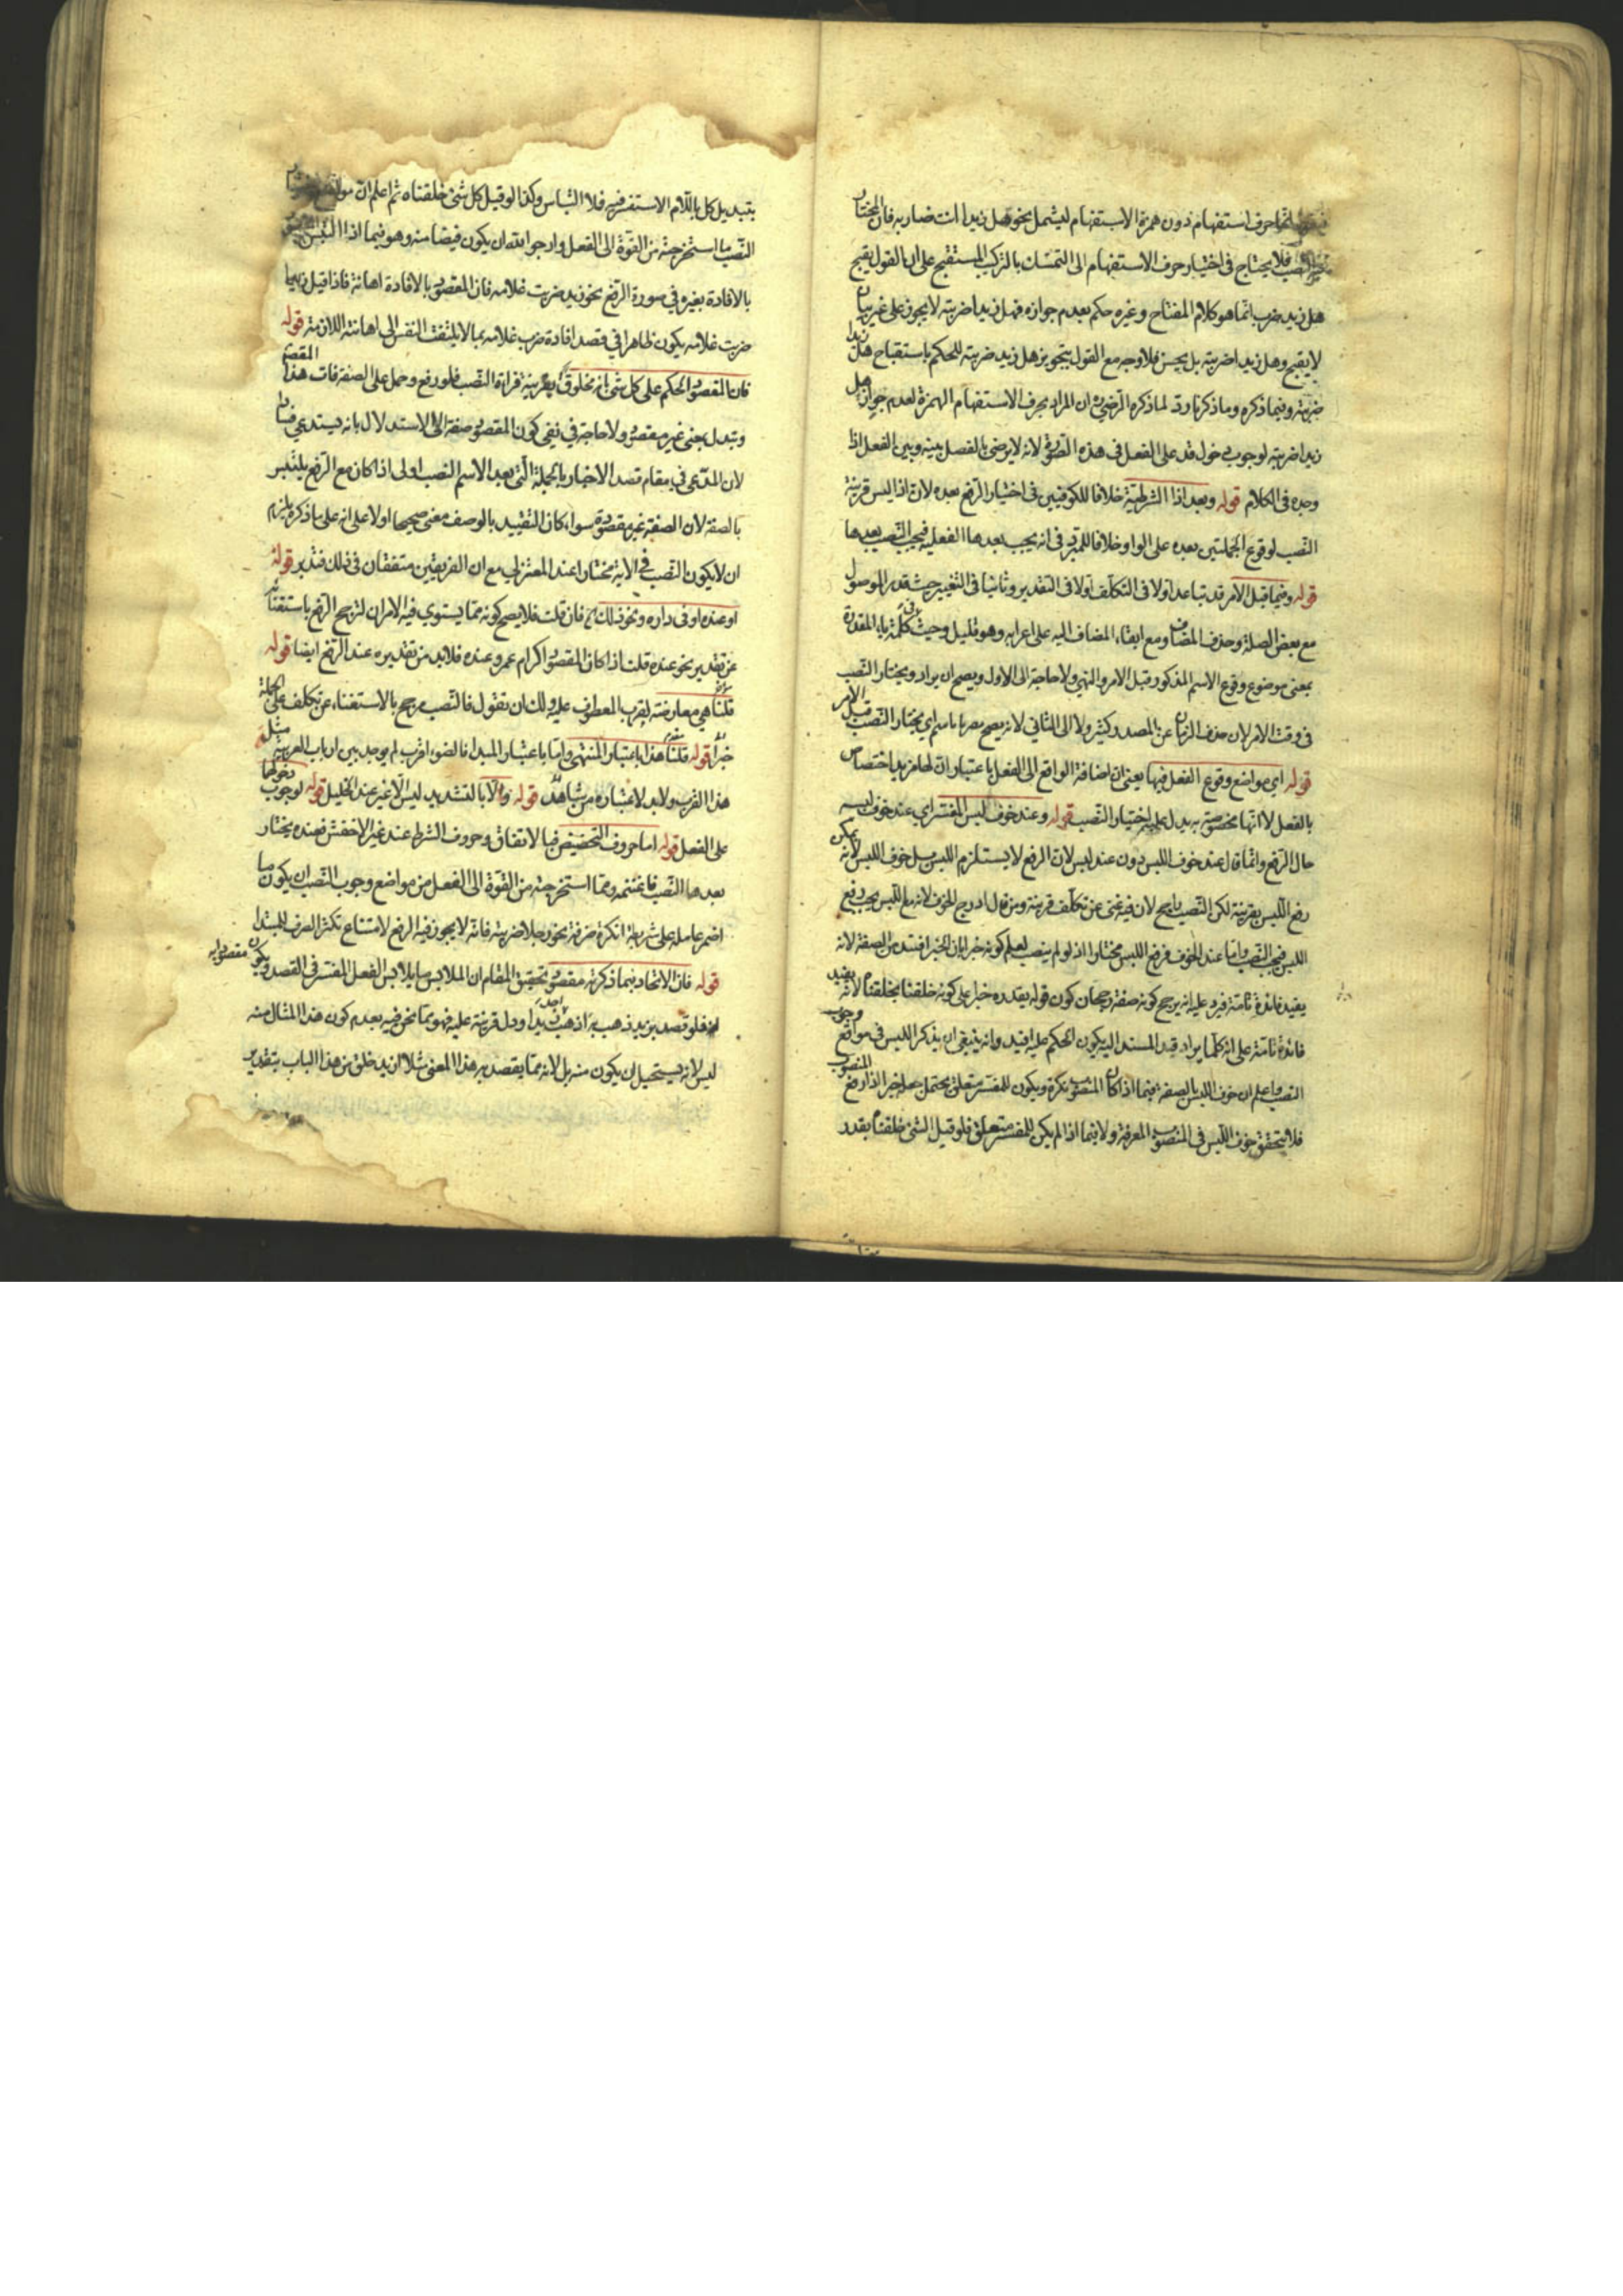 انما حرف استفهام دون همزة الاستفهام ليشمل نحو هل زيدا انت ضاربه فان المختار
النصب فلا يحتاج في اختيار حرف الاستفهام الى التمسك بالتركيب المستقبح على ان القول بقبح
هل زيد ضرب انما هو كلام المفتاح وغيره حكم بعدم جوازه فهل زيدا ضربته لا يجوز على غير بيان
لا يقبح وهل زيدا ضربته بل يحسن فلا وجه مع القول بتجويز هل زيد ضربته للحكم باستقباح هل زيدا
ضربته وفيما ذكره وما ذكرنا رد لما ذكره الرضي ره ان المراد بحرف الاستفهام الهمزة لعدم جواز هل
زيدا ضربته لوجوب دخول قد على الفعل في هذه الصورة لانه لا يرضى بالفصل بينه وبين الفعل اذا
وجده في الكلام قوله وبعد اذا الشرطية خلافا للكوفيين في اختيار الرفع بعده لان اذا ليس قرينة
النصب لوقوع الجملتين بعده على الواو خلافا للمبرد في انه يجب بعدها الفعلية فيجب النصب بعدها
قوله وفيما قبل الامر قد تباعد اولا في التكلف اولا في التقدير وثانيا في التغيير حيث قدر الموصول
مع بعض الصلة وحذف المضاف ومع ابقاء المضاف اليه على اعرابه وهو قليل وحيث كلمة في بابا المقدرة
بمعنى موضوع وقوع الاسم المذكور قبل الامر والنهي ولا حاجة الى الاول ويصح ان يراد ويختار النصب
في وقت الامر لان حذف الزمان عن المصدر كثير ولا الى الثاني لانه يصح مصربا باسم اي يختار النصب قبل الامر
قوله اي مواضع وقوع الفعل فيها يعني ان اضافة الواقع الى الفعل باعتبار ان لها مزيد اختصاص
بالفعل لا انها مخصوصة به بدليل اختيار النصب قوله وعند خوف لبس المفسر اي عند خوف لبسه
حال الرفع وانما قال عند خوف اللبس دون عند لبس لان الرفع لا يستلزم اللبس بل خوف اللبس لانه يمكن
رفع اللبس بقرينة لكن النصب راجح لان فيه غنى عن تكلف قرينة ومن قال ادرج الخوف لانه مع اللبس يجب رفع
اللبس فيجب النصب واما عند الخوف فرفع اللبس مختار اذ لو لم ينصب لعلم كونه خبرا بان الخبر افتد من الصفة لانه
يفيد فائدة تامة فيرد عليه انه يرجح كونه صفة رجحان كون قوله بقدر خبرا على كونه خلقنا بخلقناه لانه يفيد
فائدة تامة على انه كلما يراد قيد المسند اليه يكون الحكم عليه افيد وانه ينبغي ان يذكر اللبس في مواقع وجوب
النصب واعلم ان خوف اللبس بالصفة فيما اذا كان المنصوب نكرة ويكون للمفسر متعلق يحتمل جعله خبرا اذا رفع المنصوب
فلا يتحقق خوف اللبس في المنصوب المعرفة ولا فيما اذا لم يكن للمفسر متعلق فلو قيل الشئ خلقناه بقدر
بتبديل كل باللام الاستغراقية فلا التباس وكذا لو قيل كل شئ خلقناه ثم اعلم ان
النصب ما استخرجته من القوة الى الفعل وارجو الله ان يكون فيضا منه وهو فيما اذا التبس
بالافادة بغيره في صورة الرفع نحو زيد ضربت غلامه فان المقصود بالافادة اهانة فاذا قيل زيدا
ضربت غلامه يكون ظاهرا في قصد افادة ضرب غلامه بما لا يلتفت النفس الى اهانته اللازمة قوله
فان المقصود الحكم على كل شئ بانه مخلوق بقرينة قراءة النصب فلو رفع وحمل على الصفة فات هذا المقصود
وتبدل بمعنى غير مقصود ولا حاجة في نفي كون المقصود صفة الى الاستدلال بانه يستدعي فسادا
لان المدعى في مقام قصد الاخبار بالجملة التي بعد الاسم النصب اولى اذا كان مع الرفع يلتبس
بالصفة لان الصفة غير مقصودة سواء كان التقييد بالوصف معنى صحيحا اولا على انه على ما ذكره يلزم
ان لا يكون النصب في الاية مختارا عند المعتزلي مع ان الفريقين متفقان في ذلك فتدبر قوله
او عنده او في داره ونحو ذلك فان قلت فلا يصح كونه مما يستوي فيه الامران لترجح الرفع باستغنائه
عن تقدير نحو عنده قلت اذا كان المقصود اكرام عمرو عنده فلا بد من تقديره عند الرفع ايضا قوله
قلنا هي معارضة لقرب المعطوف عليه ولك ان تقول فالنصب مرجح بالاستغناء عن تكلف جعل الجملة
خبرا قوله قلنا هذا باعتبار المنتهى واما باعتبار المبدا فالضوء اقرب لم يوجد بين ارباب العربية مثل
هذا القرب ولا بد لاعتباره من شاهد قوله والا بالتشديد ليس الا غير عند الخليل قوله لوجوب دخولها
على الفعل قوله اما حروف التحضيض فبالاتفاق وحروف الشرط عند غير الاخفش فعنده يختار
بعدها النصب فاغتنمه ومما استخرجته من القوة الى الفعل من مواضع وجوب النصب ان يكون ما
اضمر عامله على شريطة انكرة صرفة نحو رجلا ضربته فانه لا يجوز فيه الرفع لامتناع تنكر الصرف للمبتدا
قوله فان الاتحاد فيما ذكرته مقصود تحقيق المقام ان الملابس ما يلابس الفعل المفسر في القصد ويكون مقصودا به
فلو قصد بزيد ذهب به اذهب احد زيدا ودل قرينة عليه فهو مما نحن فيه بعدم كون هذا المثال منه
ليس لانه يستحيل ان يكون منه بل لانه مما يقصد به هذا المعنى مثلا ازيد خلق من هذا الباب بتقدير